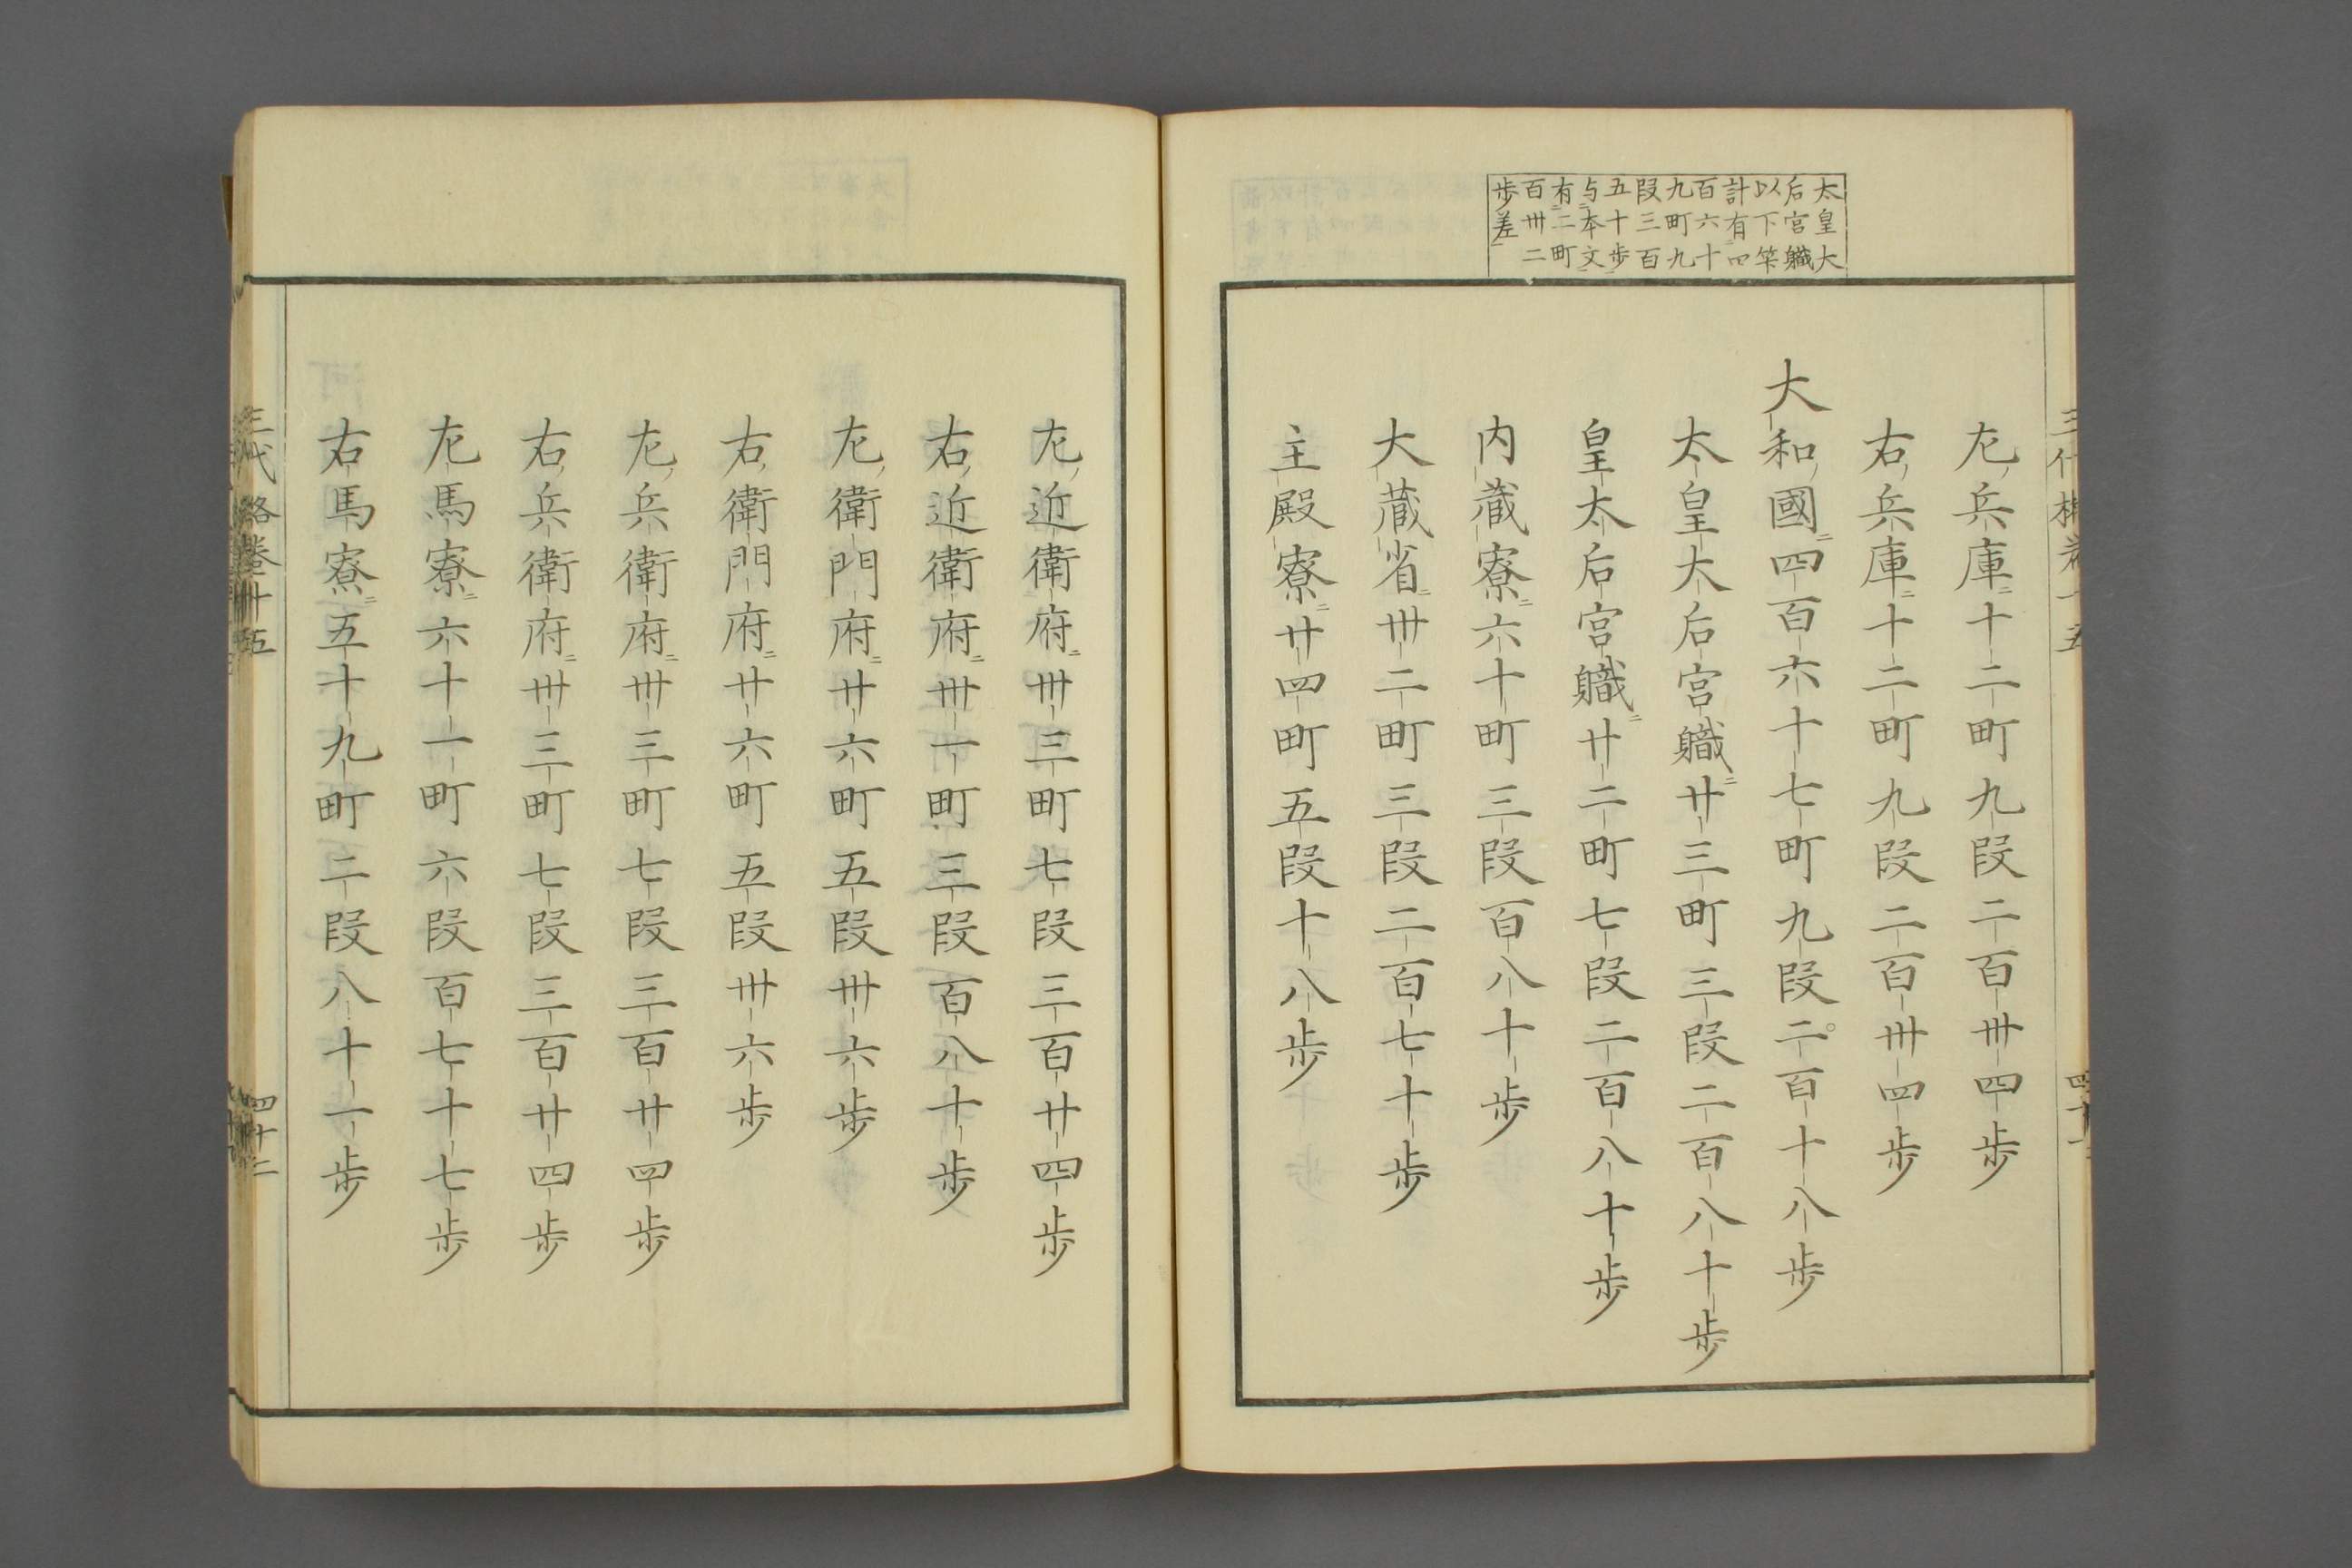 太皇大
后宮職
以下筭
計有四
百六十
九町九
段三百
五十歩
与本文
有二町
百卅二
歩差
左兵庫十二町九段二百卅四歩
右兵庫十二町九段二百卅四歩
大和國四百六十七町九段二百十八歩
太皇大后宮職廿三町三段二百八十歩
皇太后宮職廿二町七段二百八十歩
内蔵寮六十町三段百八十歩
大蔵省卅二町三段二百七十歩
主殿寮廿四町五段十八歩
左近衛府卅三町七段三百廿四歩
右近衛府卅一町三段百八十歩
左衛門府廿六町五段卅六歩
右衛門府廿六町五段卅六歩
左兵衛府卅三町七段三百廿四歩
右兵衛府卅三町七段三百廿四歩
左馬寮六十一町六段百七十七歩
右馬寮五十九町二段八十一歩
四十二